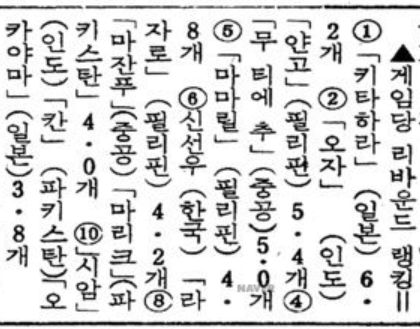 ▲게임당 리바운드 랭킹=
①「키타하라」 (일본) 6·
2개 ②「오자」 (인도)
「얀고」(필리핀) 5·4개④
「무 티에 추」(중공)5·0개
⑤「마마릴」 (필리핀) 4·
8개 ⑥신선우 (한국) 「라
자로」 (필리핀) 4·2개⑧
「마잔푸」(중공) 「마리크」(파
키스탄」 4·0개 ⑩「시암」
(인도) 「칸」 (파키스탄)「오
카야마」(일본) 3·8개
NAVER